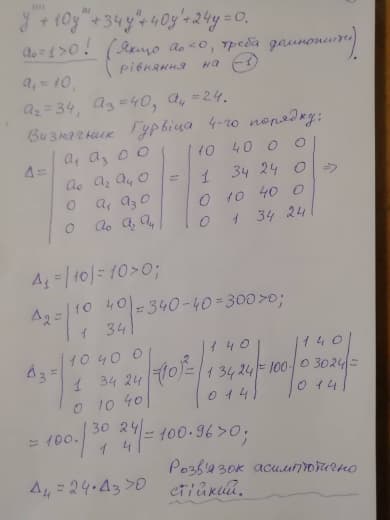 y'''' + 10y''' + 34y'' + 40y' + 24y = 0.
a₀ = 1 > 0! (Якщо a₀ < 0, треба домножити рівняння на -1).
a₁ = 10,
a₂ = 34, a₃ = 40, a₄ = 24.
Визначник Гурвіца 4-го порядку:
Δ = | a₁ a₃ 0 0 | = | 10 40 0 0 | ⇒
| a₀ a₂ a₄ 0 | | 1 34 24 0 |
| 0 a₁ a₃ 0 | | 0 10 40 0 |
| 0 a₀ a₂ a₄ | | 0 1 34 24 |
Δ₁ = |10| = 10 > 0;
Δ₂ = | 10 40 | = 340 - 40 = 300 > 0;
| 1 34 |
Δ₃ = | 10 40 0 | = (10)² = | 1 4 0 | = 100 · | 1 4 0 | =
| 1 34 24 | | 1 34 24 | | 0 30 24 |
| 0 10 40 | | 0 1 4 | | 0 1 4 |
= 100 · | 30 24 | = 100 · 96 > 0;
| 1 4 |
Δ₄ = 24 · Δ₃ > 0 Розв'язок асимптотично
стійкий.